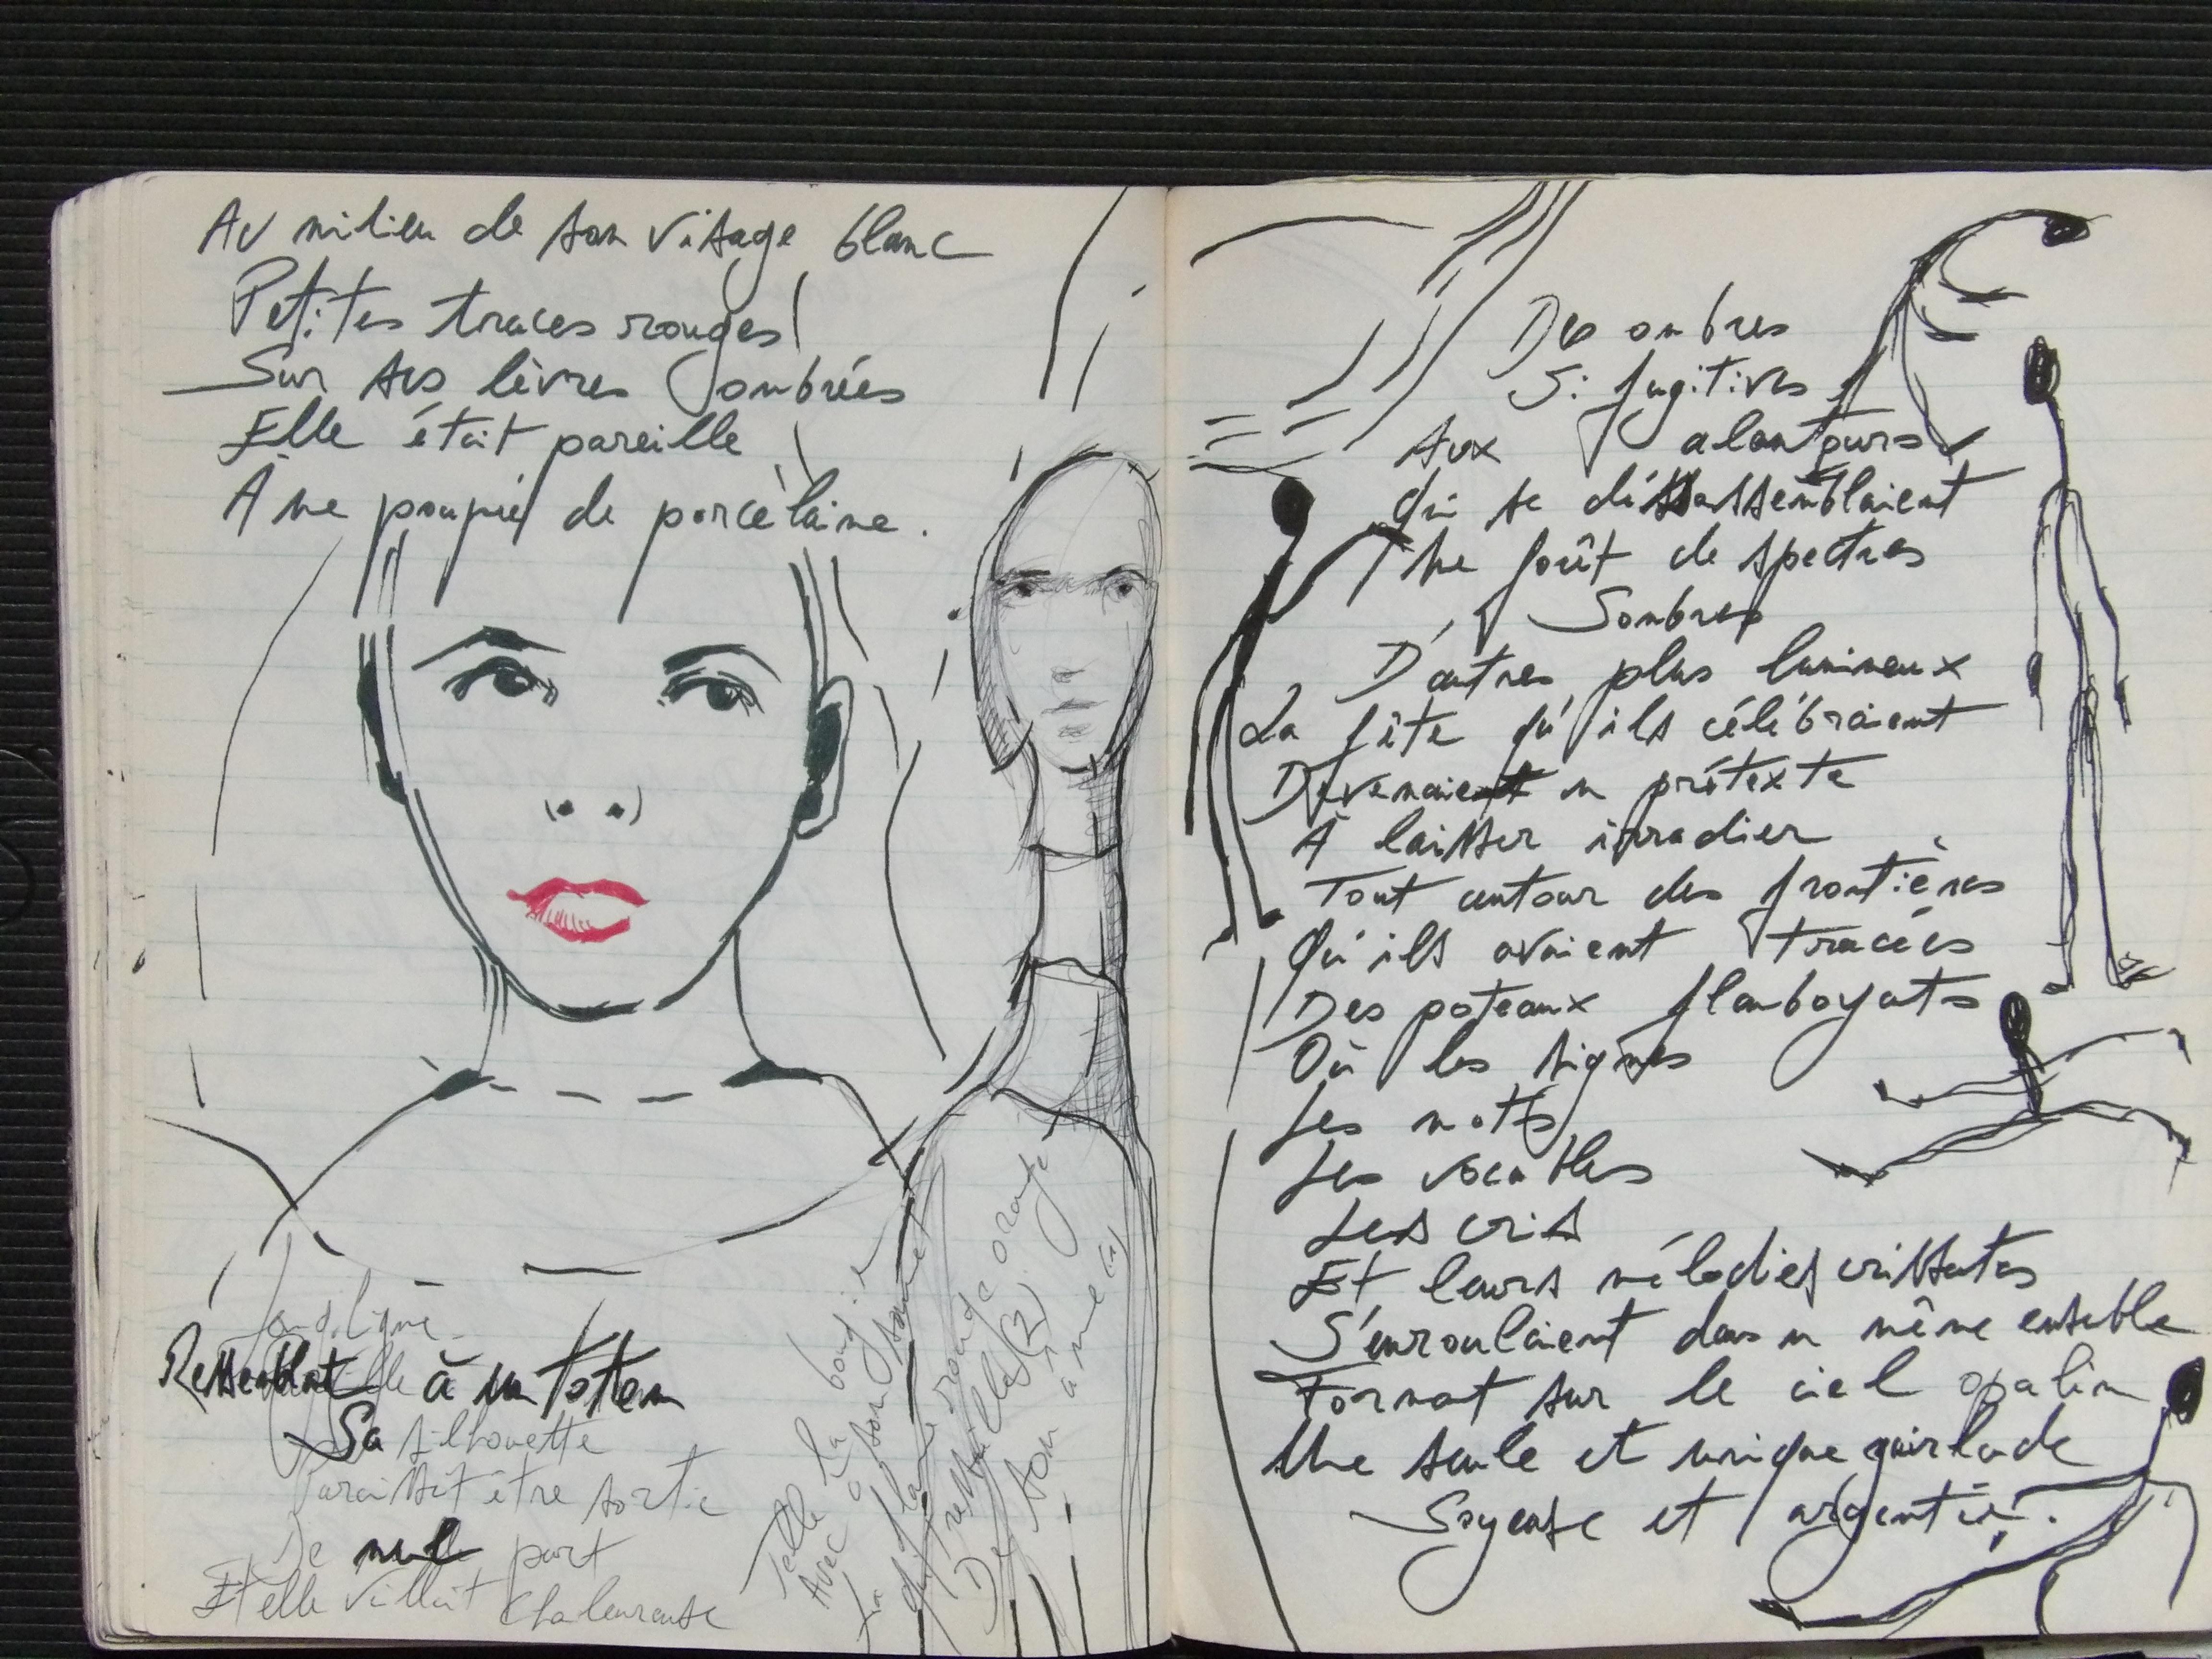 Au milieu de son visage blanc
Petites traces rouges
Sur ses lèvres ombrées
Elle était pareille
À une poupée de porcelaine.
longiligne
Ressemblant à un totem
Sa silhouette
Paraissait être sortie
De nul part
Et elle veillait chaleureuse
Telle la bougie
Avec à son sommet
La flamme rouge orangé
qui tressaille (2)
De son âme (1)
Des ombres
Si fugitives
Aux alentours
Qui se désassemblaient
Une forêt de spectres
Sombres
D'autres plus lumineux
La fête qu'ils célébraient
Devenaient un prétexte
À laisser irradier
Tout autour des frontières
Qu'ils avaient tracées
Des poteaux flamboyants
Où les signes
Les mots
Les vocables
Les cris
Et leurs mélodies crissantes
S'enroulaient dans un même ensemble
Formant sur le ciel opalin
Une seule et unique guirlande
Soyeuse et argentée.